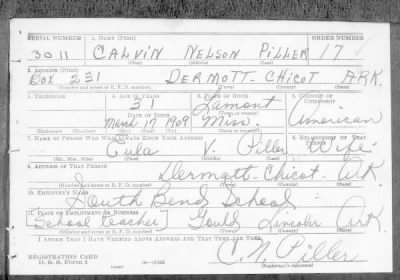 SERIAL NUMBER 1. NAME (Print) ORDER NUMBER
3011 CALVIN NELSON PILLER 17
(First) (Middle) (Last)
2. ADDRESS (Print)
Box 231 DERMOTT - CHICOT ARK
(Number and street or R. F. D. number) (Town) (County) (State)
3. TELEPHONE 4. AGE IN YEARS 5. PLACE OF BIRTH 6. COUNTRY OF CITIZENSHIP
31 Lamont
DATE OF BIRTH
March 17 1909 Miss. American
(Exchange) (Number) (Mo.) (Day) (Yr.) (State or country)
7. NAME OF PERSON WHO WILL ALWAYS KNOW YOUR ADDRESS 8. RELATIONSHIP OF THAT PERSON
Eula V. Piller Wife
(Mr., Mrs., Miss) (First) (Middle) (Last)
9. ADDRESS OF THAT PERSON
Dermott - Chicot - Ark.
(Number and street or R. F. D. number) (Town) (County) (State)
10. EMPLOYER'S NAME
South Bend School
11. PLACE OF EMPLOYMENT OR BUSINESS
[School teacher] Gould Lincoln Ark.
(Number and street or R. F. D. number) (Town) (County) (State)
I AFFIRM THAT I HAVE VERIFIED ABOVE ANSWERS AND THAT THEY ARE TRUE.
C. N. Piller
REGISTRATION CARD
D. S. S. Form 1
(Registrant's signature)